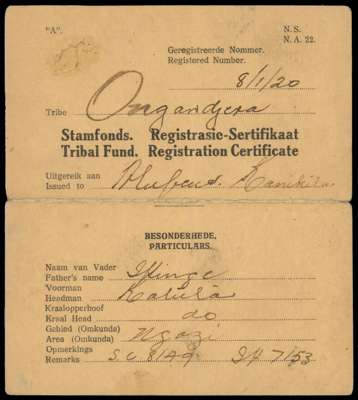 "A".
N.S.
N.A. 22.
Geregistreerde Nommer.
Registered Number.
8/1/20
Tribe Ongandjera
Stamfonds. Registrasie-Sertifikaat
Tribal Fund. Registration Certificate
Uitgereik aan
Issued to
BESONDERHEDE.
PARTICULARS.
Naam van Vader
Father's name
Voorman
Headman
Kraalopperhoof
Kraal Head do
Gebied (Omkunda)
Area (Omkunda)
Opmerkings
Remarks S.C 8/49